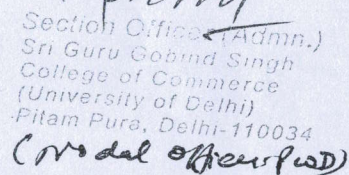 Section Officer (Admn.)
Sri Guru Gobind Singh
College of Commerce
(University of Delhi)
Pitam Pura, Delhi-110034
(Nodal Officer PWD)